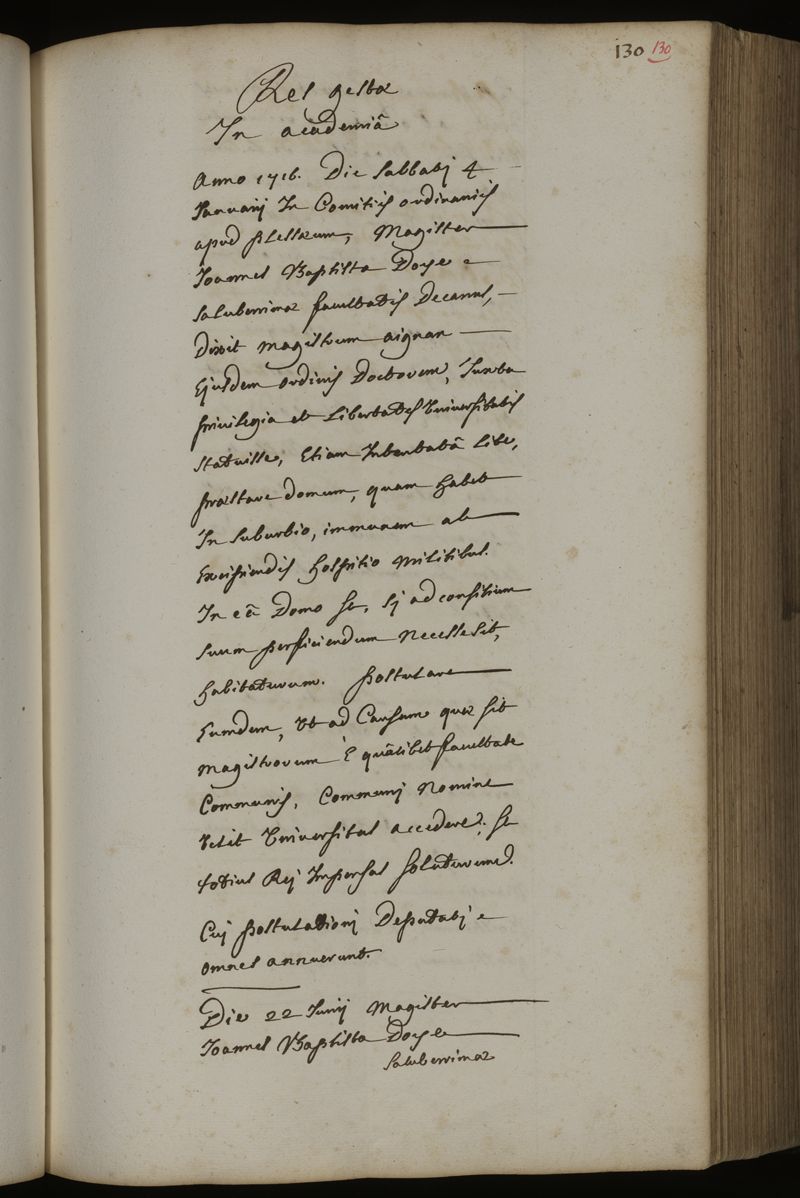 130 130
Res gestæ
In academiâ
Anno 1716. Die Sabbatj 4
Januarij In Comitijs ordinarijs
apud Plessæum, Magister
Joannes Baptista Doye
saluberrimæ facultatis Decanus,
Dixit magistrum aignan
Ejusdem ordinis Doctorem, Juxta
privilegia et Libertates Universitatis
statuisse, Etiam Intentatâ Lite,
præstare domum, quam habet
In suburbio, immunem ab
Excipiendis hospitio militibus.
In eâ Domo se, sj ad consilium
suum perficiendum necesse sit,
habitaturum. postulare
Eumdem, Ut ad Causam quæ sit
magistrorum è quâlibet facultate
Communis, Communj nomine
Velit Universitas accedere; se
totius Rej Impensas soluturum.
Cuj postulationj Deputatj
omnes annuerunt.
Die 22 Junij Magister
Joannes Baptista Doye
saluberrimæ